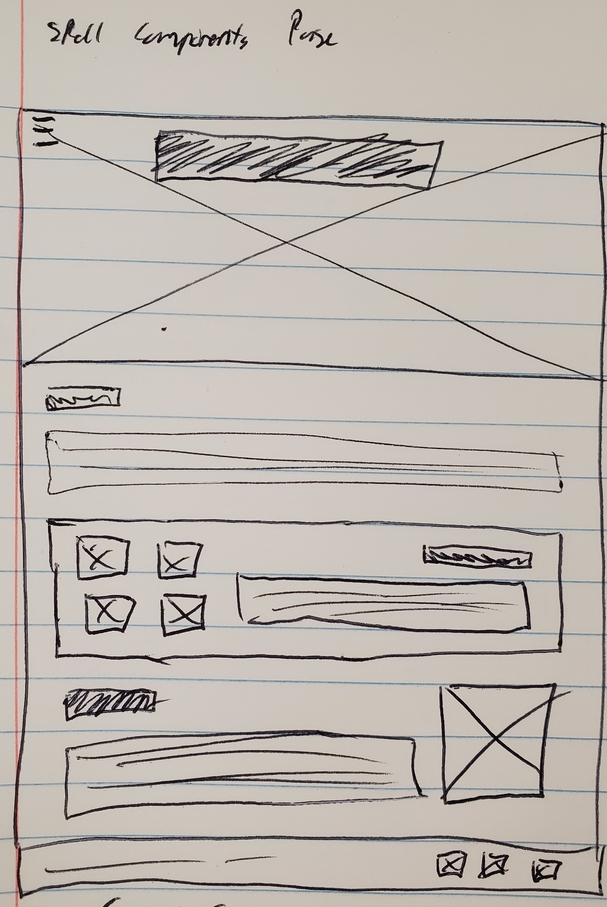 Spell Components Page